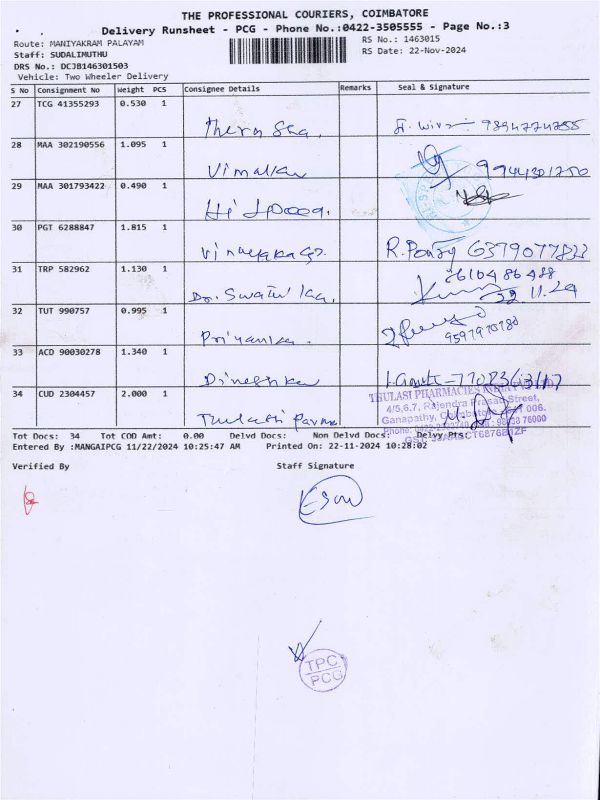 THE PROFESSIONAL COURIERS, COIMBATORE
Delivery Runsheet - PCG - Phone No.:0422-3505555 - Page No.:3
Route: MANIYAKRAM PALAYAM
RS No.: 1463015
Staff: SUDALIMUTHU
RS Date: 22-Nov-2024
DRS No.: DCJB146301503
Vehicle: Two Wheeler Delivery
S No Consignment No Weight PCS Consignee Details Remarks Seal & Signature
27 TCG 41355293 0.530 1
28 MAA 302190556 1.095 1
Vimalkar 9944301750
29 MAA 301793422 0.490 1
30 PGT 6288847 1.815 1
R. Ponsy 6379077823
31 TRP 582962 1.130 1
8610486488
Dr. Swathi 22.11.24
32 TUT 990757 0.995 1
Priyanka 9597970780
33 ACD 90030278 1.340 1
Dinesh
34 CUD 2304457 2.000 1
THULASI PHARMACIES
4/5,6,7, Rajendra Prasad Street,
Ganapathy, Coimbatore 006.
Thulasi Parma
Tot Docs: 34 Tot COD Amt: 0.00 Delvd Docs: Non Delvd Docs: Delvy Pts:
Entered By :MANGAIPCG 11/22/2024 10:25:47 AM Printed On: 22-11-2024 10:28:02
Verified By Staff Signature
TPC
PCG